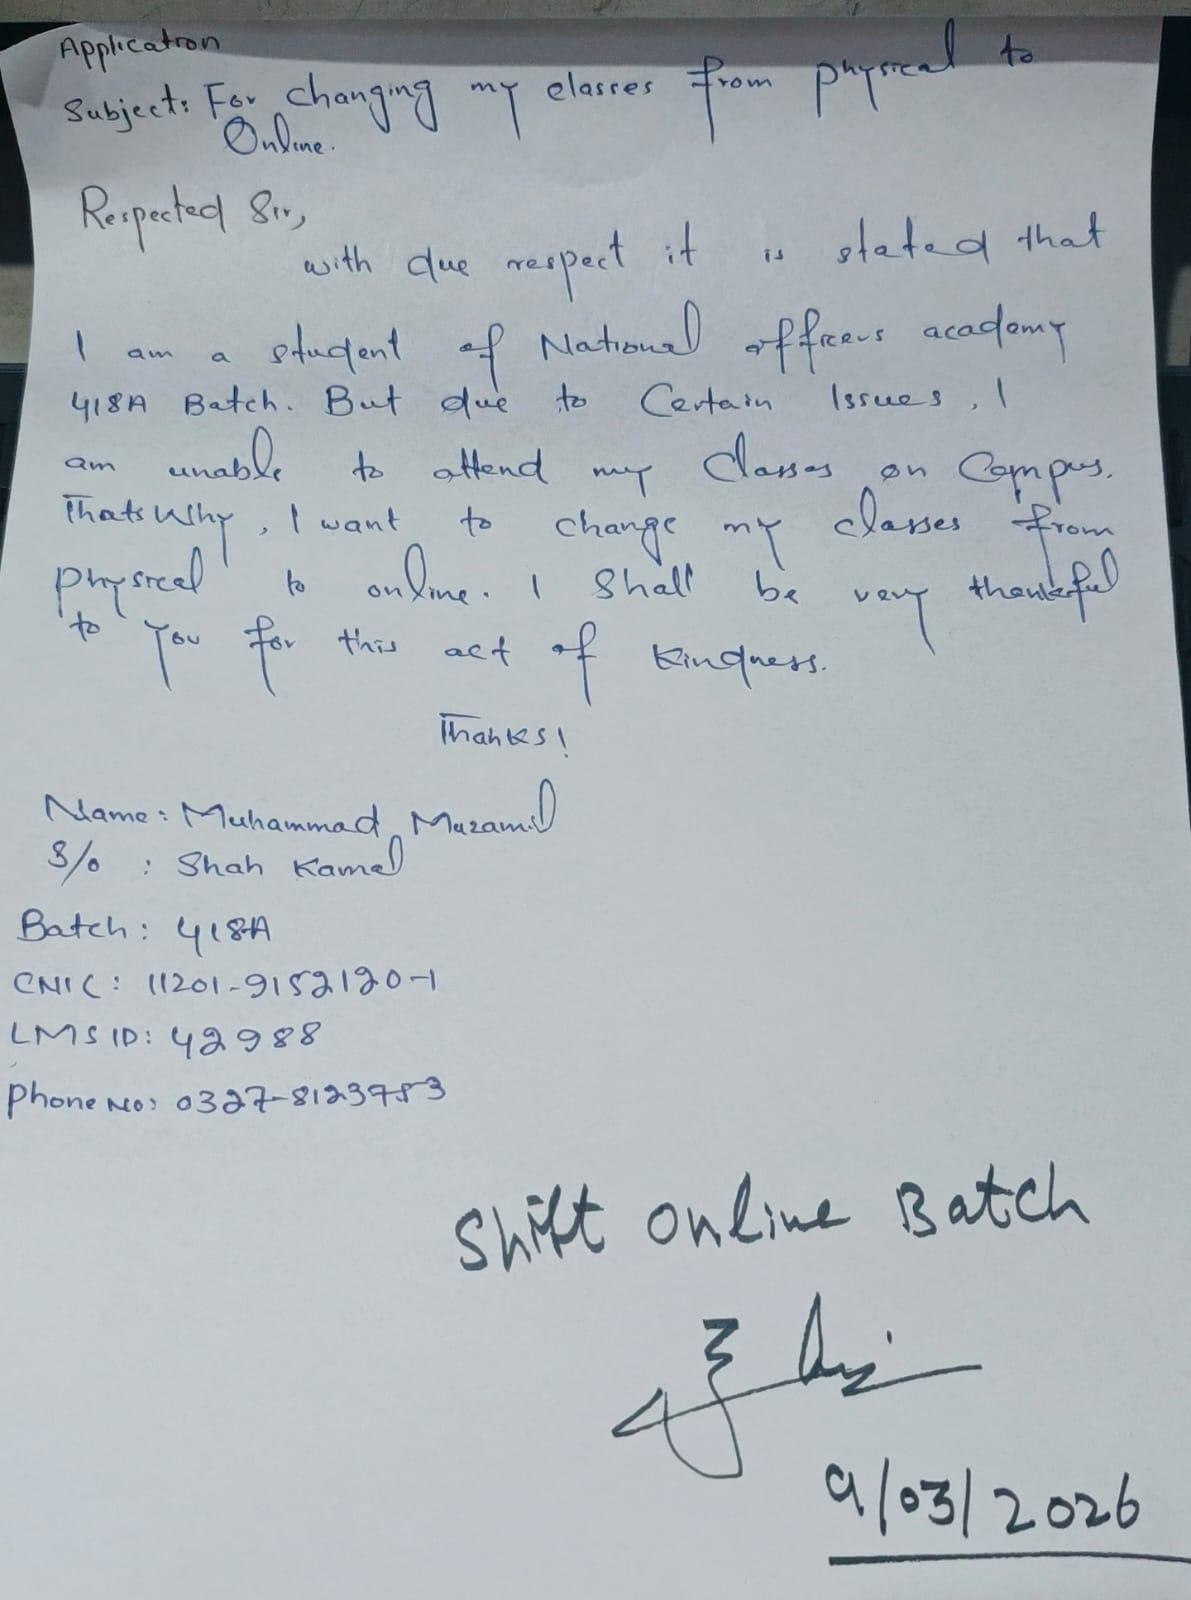 Application
Subject: For changing my classes from physical to
Online.
Respected Sir,
with due respect it is stated that
I am a student of National officers academy
418A Batch. But due to Certain Issues, I
am unable to attend my Classes on Campus.
Thats Why, I want to change my classes from
physical to online. I Shall be very thankful
to you for this act of Kindness.
Thanks!
Name: Muhammad Muzamil
S/o : Shah Kamal
Batch: 418A
CNIC: 11201-9152120-1
LMS ID: 42988
Phone No: 0327-8123753
Shift Online Batch
9/03/2026